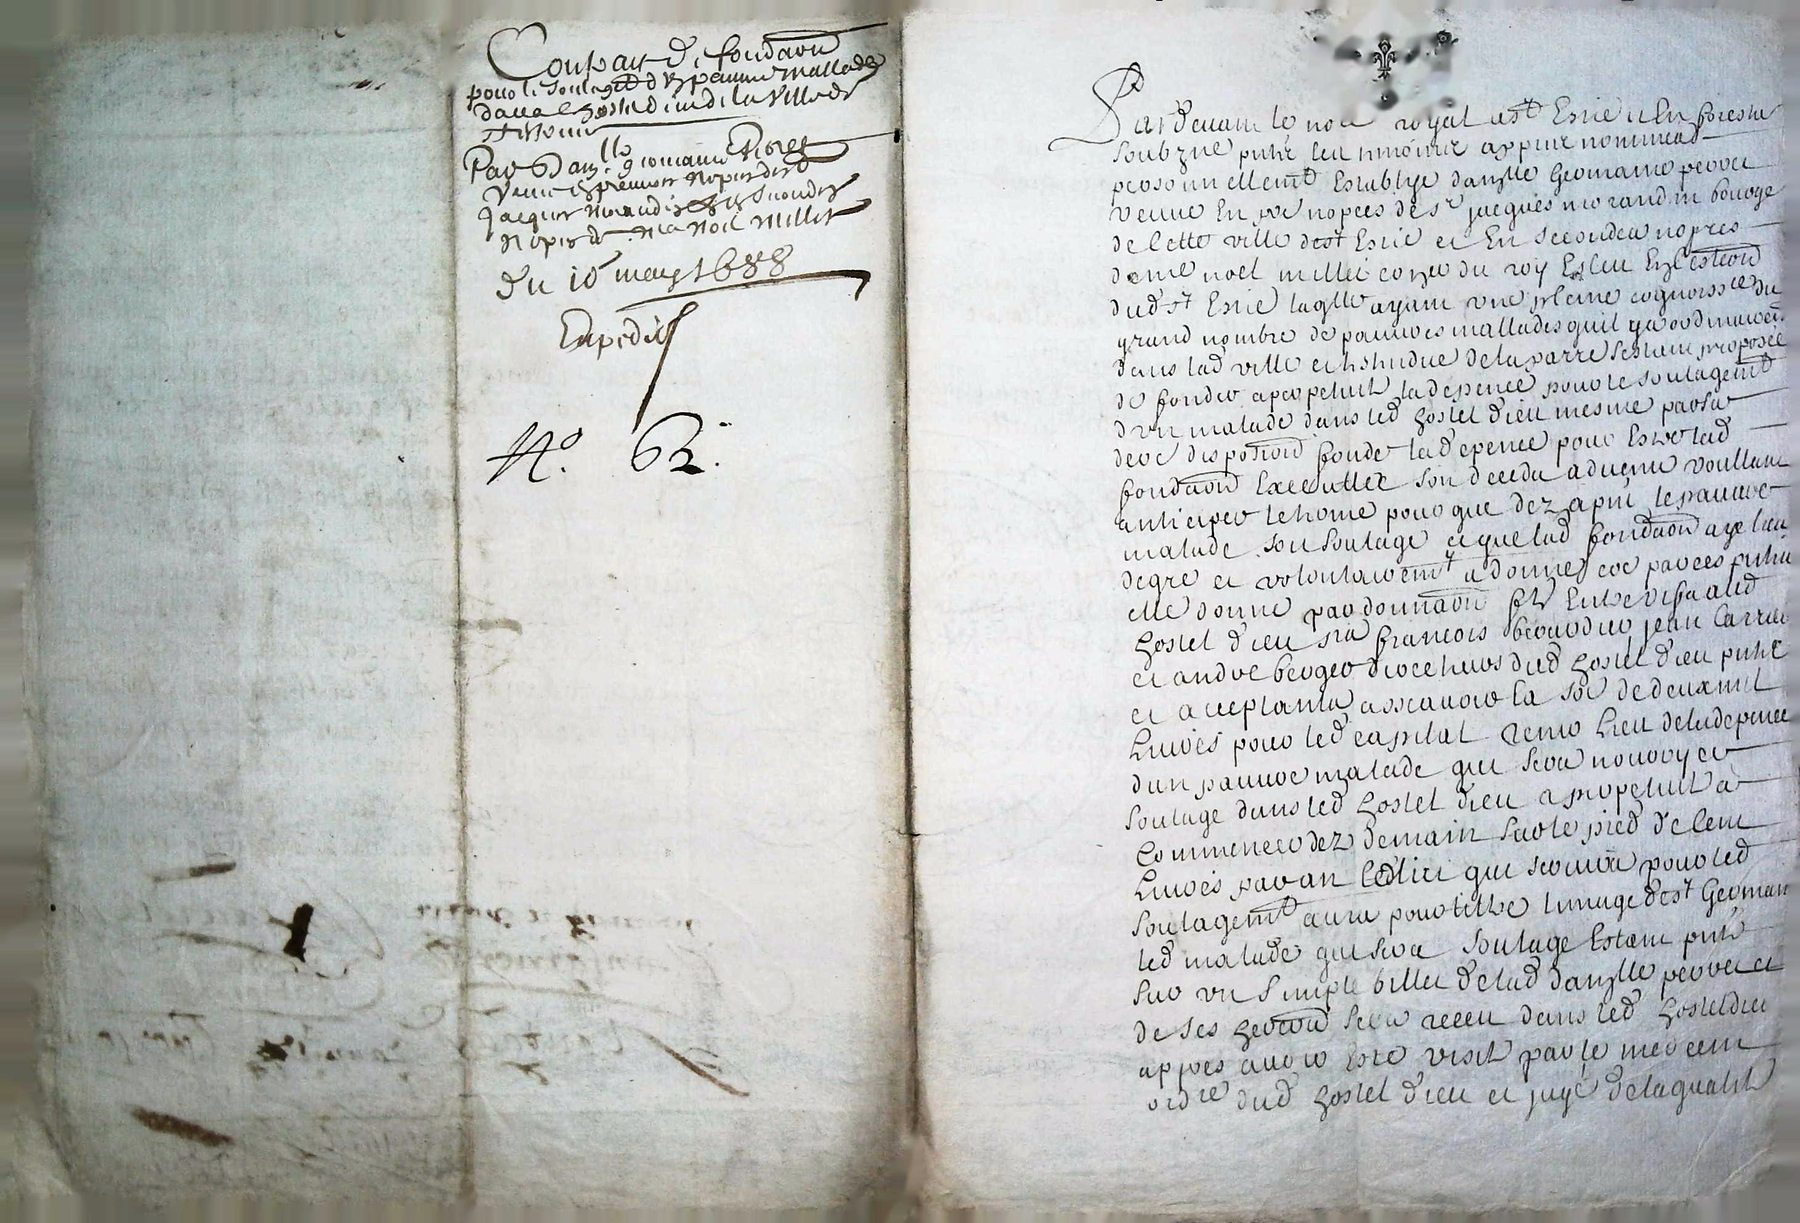 Contrat de fondaōn
pour le soulagemt d'un pauvre mallade
dans l'hostel dieu de la ville de
st Estienne
Par damlle germaine Perret
veuve en premier nopces de sr
Jacques morandin et en secondes
nopces de me noel millet
du 10 may 1688
Expedié
No. 62.
Pardevant le nore royal a st Esne en forestz
soubzné putz les tmoins appres nommes
personnellemt establye damlle Germaine perret
veuve en pre nopces de sr jacques morandin bourge
de cette ville de st Esne et en secondes nopces
de me noel millet coner du roy esleu en l'eslection
dud st Esne laqlle ayant une pleine cognoissce du
grand nombre de pauvres mallades quil y a ordinairemt
dans lad ville et estendue de la parre sestant proposée
de fonder a perpetuité la depence pour le soulagemt
d'un malade dans led hostel dieu mesme par sa
derre dispotion fondé la depence pour estre lad
fondaōn executtée son deceds advenu voullant
anticiper le terme pour que dez a pnt le pauvre
malade soit soulagé et que lad fondaōn aye lieu
de gré et volontairemt a donné et par ces pntes
elle donne par donnaōn fte entre vifz aud
hostel dieu srs francois bourdier jean Carrier
et andre berger recteurs dud hostel dieu pntz
et acceptants assavoir la sōe de deux mil
livres pour led capital tenir lieu de la depence
d'un pauvre malade qui sera nourry et
soulagé dans led hostel dieu a perpetuité a
commencer dez demain sur le pied de cent
livres par an le lict qui servira pour led
soulagemt aura pour tiltre l'image de st Germain
led malade qui sera soulagé estant pnté
sur un simple billet de lad damlle perret et
de ses heritiers sera receu dans led hostel dieu
appres avoir esté visité par le medecin
ordre dud hostel dieu et jugé de la qualité